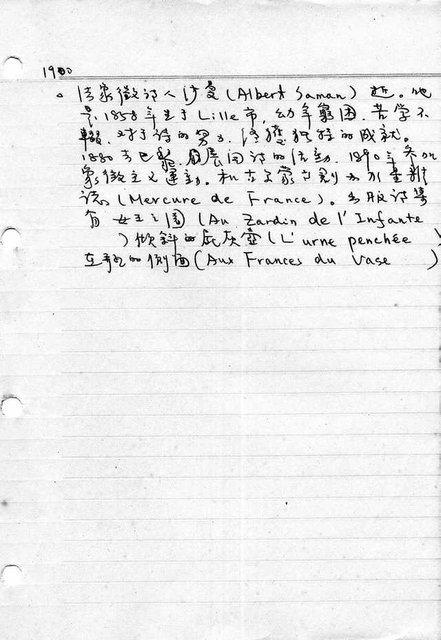 1900
。法象徵詩人沙曼(Albert Saman)逝。他
是1858年生于Lille市，幼年窮困，苦学不
輟，对于詩的努力，終獲独特的成就。
1880去巴黎，展開詩的活动，1890年参加
象徵主义運动，和古
誌(Mercure de France)。出版詩集
有 女王之園(Au Zardin de l'Infante
)傾斜的灰壺(L'urne penchée )
在瓶的側面(Aux Frances du Vase )